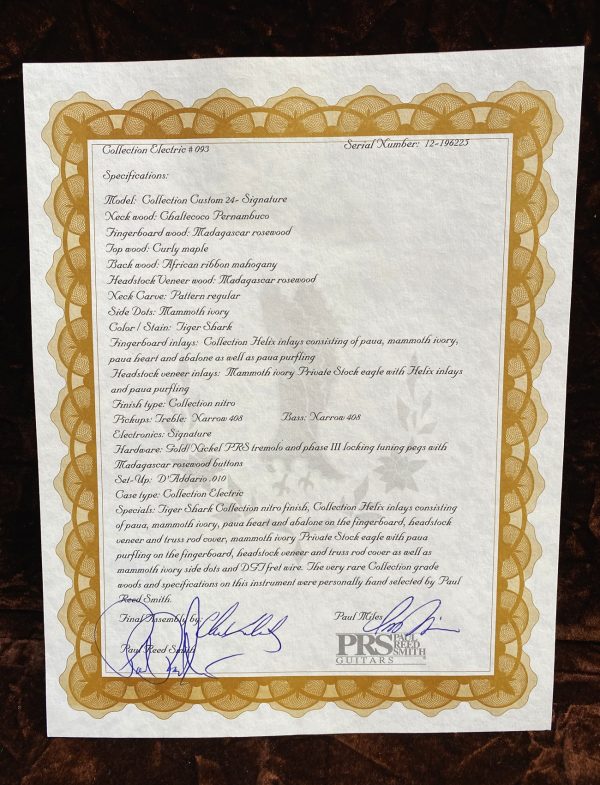 Collection Electric # 093
Serial Number: 12-196225
Specifications:
Model: Collection Custom 24- Signature
Neck wood: Chaltecoco Pernambuco
Fingerboard wood: Madagascar rosewood
Top wood: Curly maple
Back wood: African ribbon mahogany
Headstock Veneer wood: Madagascar rosewood
Neck Carve: Pattern regular
Side Dots: Mammoth ivory
Color / Stain: Tiger Shark
Fingerboard inlays: Collection Helix inlays consisting of paua, mammoth ivory,
paua heart and abalone as well as paua purfling
Headstock veneer inlays: Mammoth ivory Private Stock eagle with Helix inlays
and paua purfling
Finish type: Collection nitro
Pickups: Treble: Narrow 408 Bass: Narrow 408
Electronics: Signature
Hardware: Gold/Nickel PRS tremolo and phase III locking tuning pegs with
Madagascar rosewood buttons
Set-Up: D'Addario .010
Case type: Collection Electric
Specials: Tiger Shark Collection nitro finish, Collection Helix inlays consisting
of paua, mammoth ivory, paua heart and abalone on the fingerboard, headstock
veneer and truss rod cover, mammoth ivory Private Stock eagle with paua
purfling on the fingerboard, headstock veneer and truss rod cover as well as
mammoth ivory side dots and DGT fret wire. The very rare Collection grade
woods and specifications on this instrument were personally hand selected by Paul
Reed Smith.
Final Assembly by:
Paul Miles
Paul Reed Smith
PRS PAUL REED SMITH
GUITARS